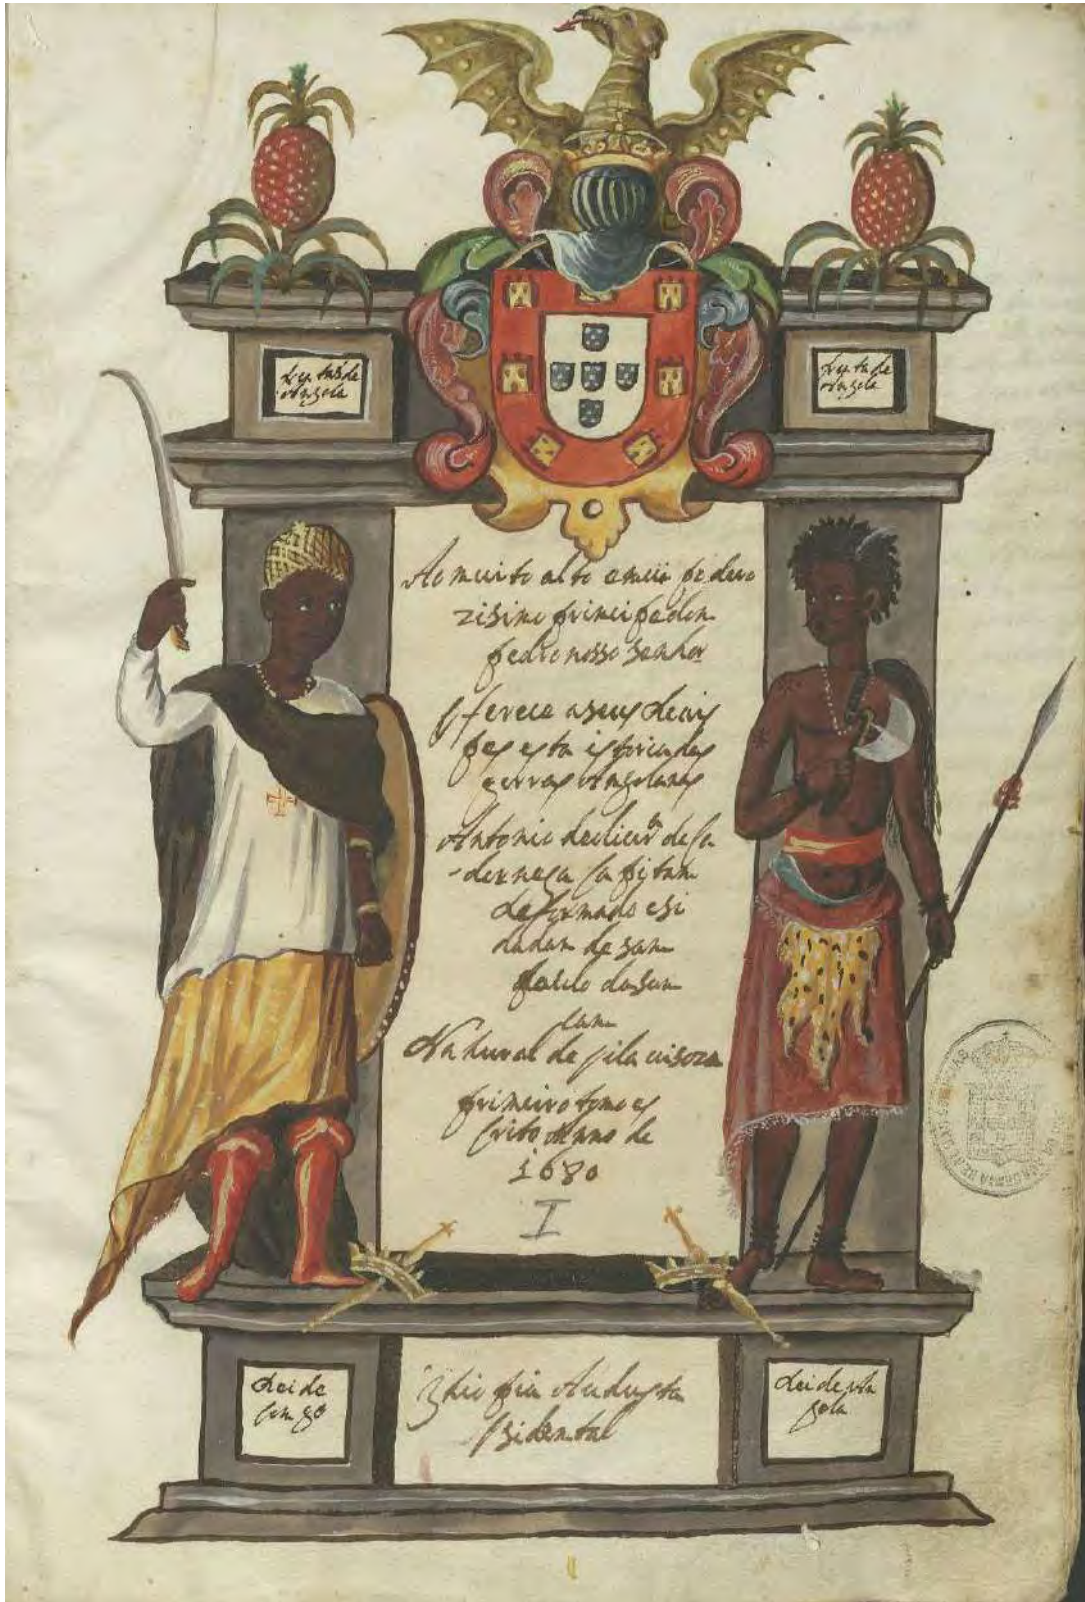 de
angola
de
angola
Ao muito alto e mui podero
zisimo primsipe dom
pedro nosso senhor
offerece a seus Reais
pes esta istoria das
gerras Angolanas
Antonio de
dornega Capitam
Reformado e si
dadam de sam
paulo da sun
cam
Natural de vila visoza
primeiro tomo es
crito o Anno de
1680
I
Rei de
Congo
Ethiopia
osidental
Rei de An
gola